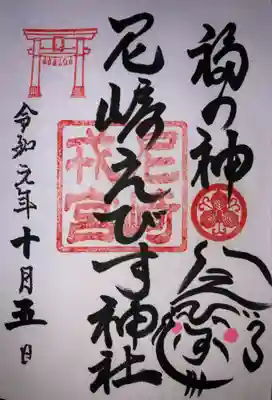 福の神
尼崎えびす神社
尼崎戎宮
令和元年十月五日